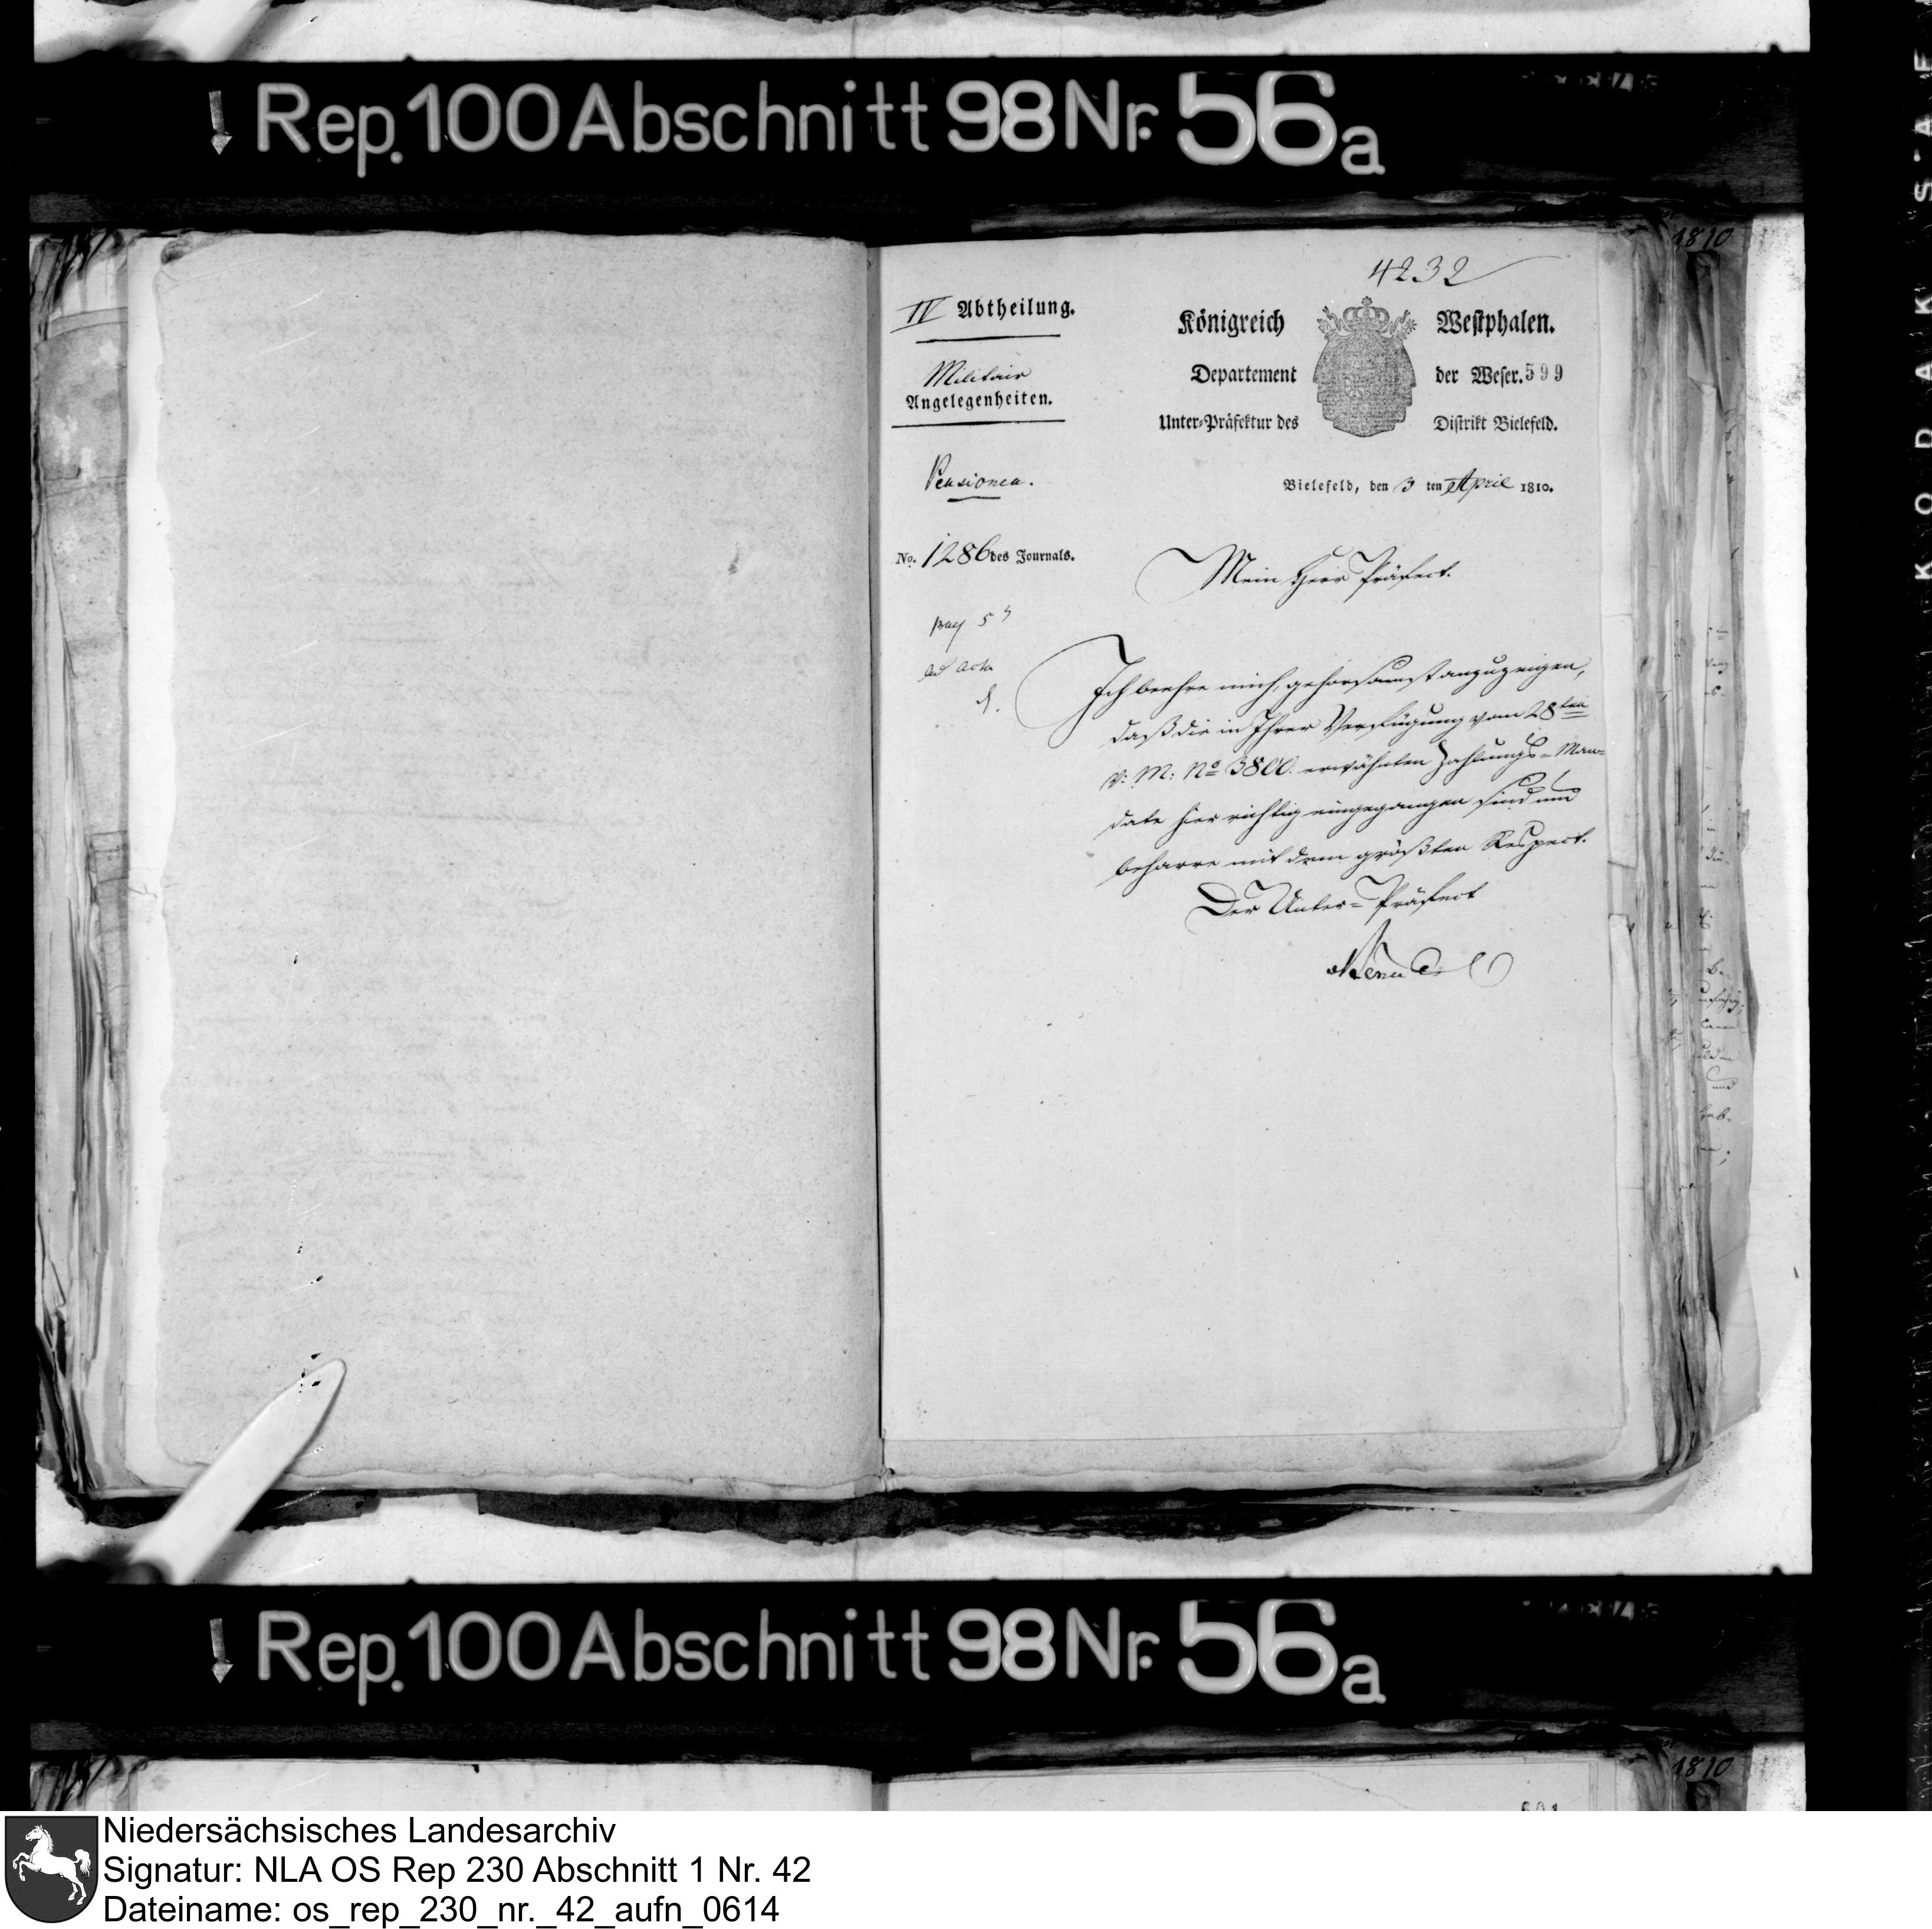 Rep. 100 Abschnitt 98 Nr. 56a
1810
4232
IV Abtheilung.
Königreich Westphalen.
Militair
Angelegenheiten.
Departement der Weser. 599
Unter-Präfektur des Distrikt Bielefeld.
Pensionen.
Bielefeld, den 3 ten April 1810.
No. 1286 des Journals.
Mein Herr Präfect.
ad acta
Ich beehre mich, gehorsamst anzuzeigen,
daß die in Ihrer Verfügung vom 28ten
v: M: No 3800. erwähnten Zahlungs-Man-
date hier richtig eingegangen sind und
beharre mit dem größten Respect.
Der Unter-Präfect
Rep. 100 Abschnitt 98 Nr. 56a
1810
KODAK SAFE
Niedersächsisches Landesarchiv
Signatur: NLA OS Rep 230 Abschnitt 1 Nr. 42
Dateiname: os_rep_230_nr._42_aufn_0614